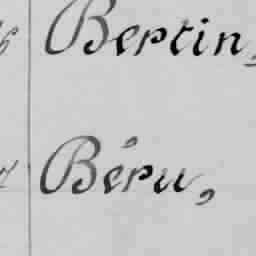 Bertin,
Béru,